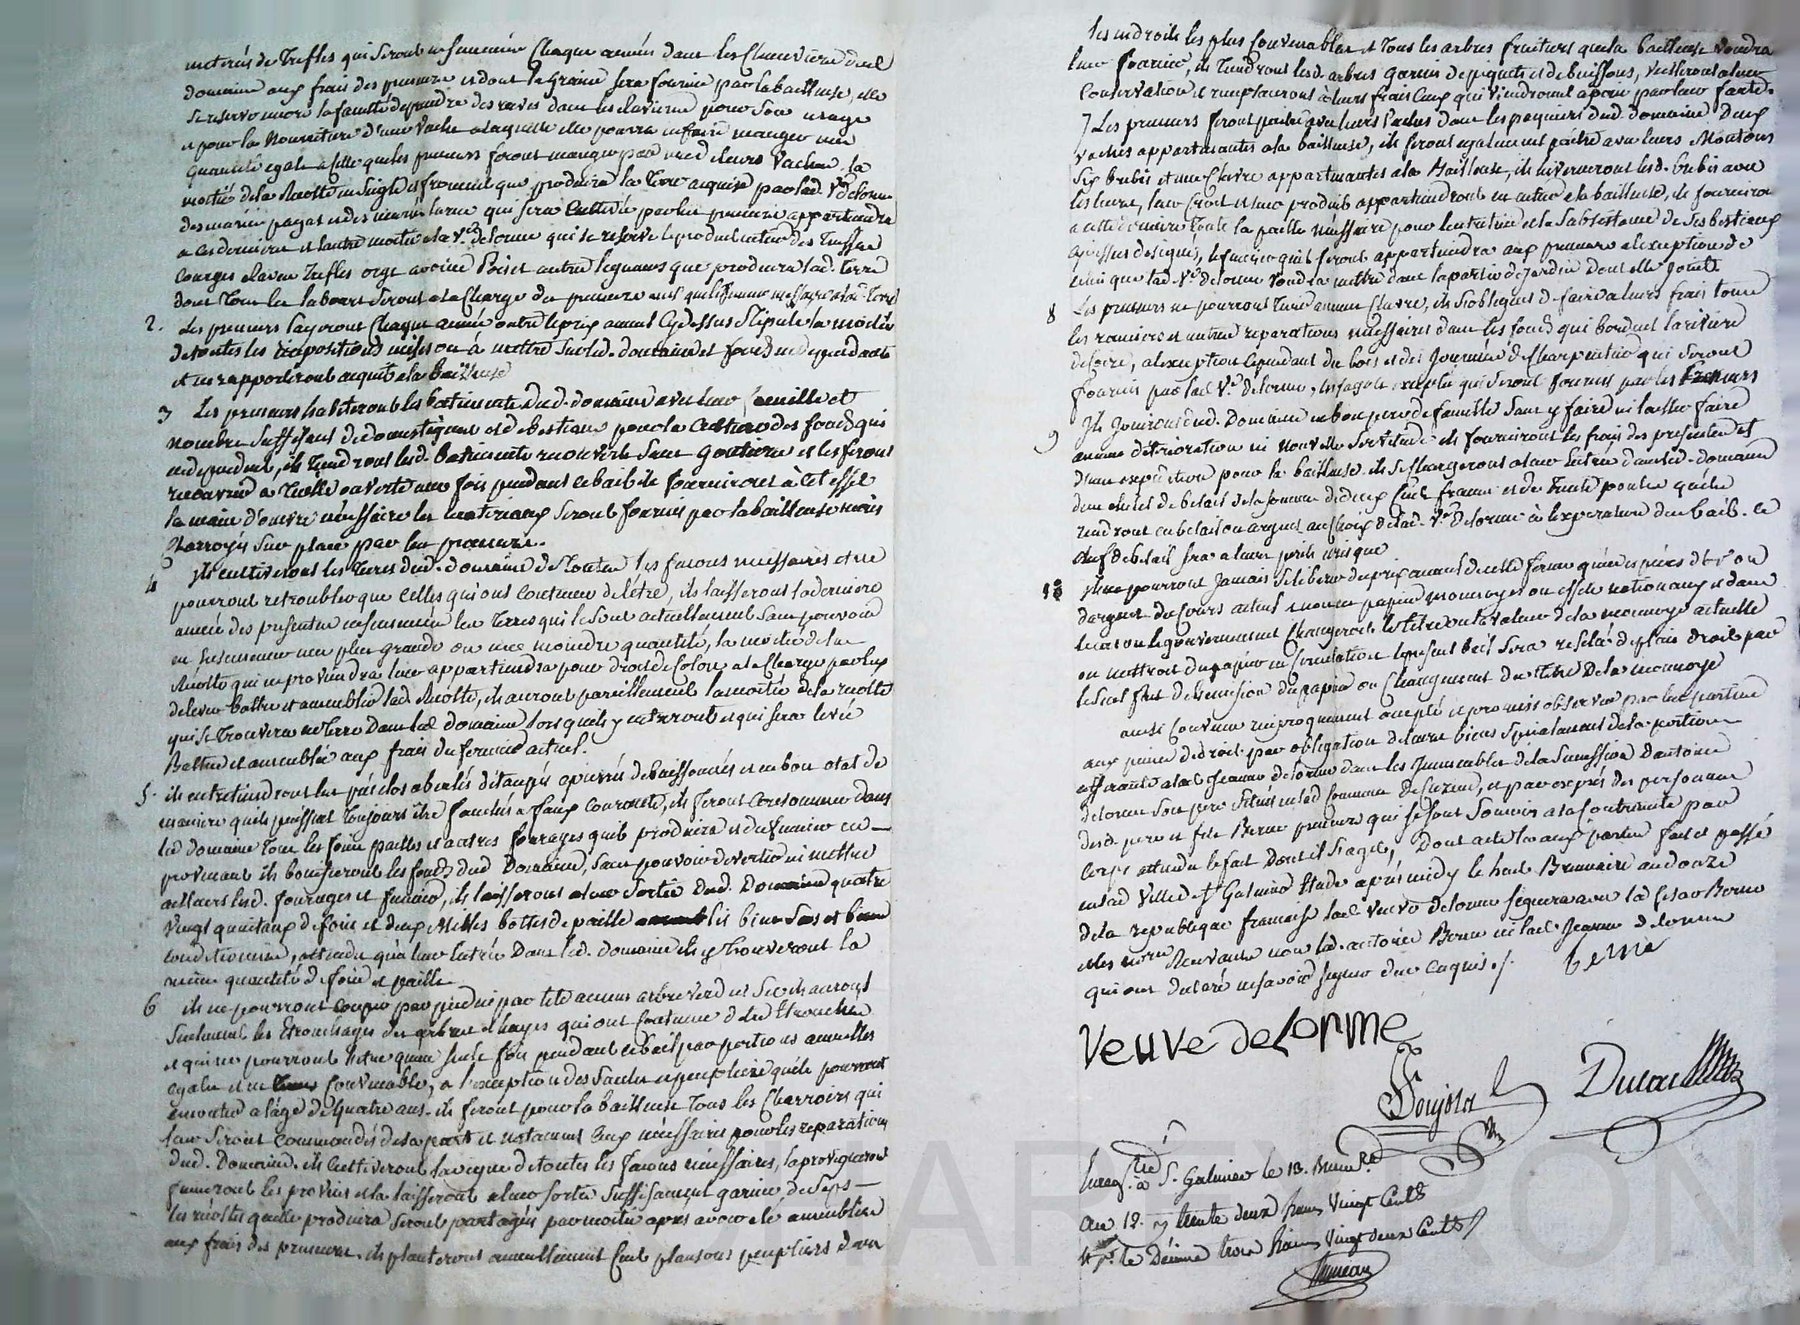 meterés de Treffles qui seront ensemencés chaque année dans les chenevieres dud
domaine aux frais des preneurs et dont la graine sera fournie par la bailleuse, elle
se reserve encore la faculté de prendre des raves dans les claviere pour son usage
et pour la nourriture d'une vache a laquelle elle pourra en faire manger une
quantité egale a celle que les preneurs feront manger par une de leurs vaches la
moitié de la recolte en seigle et froment que produira la terre acquise par lad. Ve delorme
des mariés pagat et des mariés qui sera cultivée par les preneurs appartiendra
a ces derniers et l'autre moitié a la Ve delorme qui se reserve le produit entier des Truffes
courges raves Trefles orge avoine Pois et autres legumes que produira lad. terre
dont tous les labours seront a la charge des preneurs
2. Les preneurs payeront chaque année outre le prix annuel cy dessus stipulé la moitié
de toutes les impositions mises ou à mettre sur led. domaine et fonds en dependants
et en rapporteront acquit a la bailleuse
3 Les preneurs habiteront les batiments dud. domaine avec leur famille et
nombre suffisant de domestiques et de bestiaux pour la culture des fonds qui
en dependent, ils tiendront lesd. batiments recouverts sans goutieres et les feront
recouvrir a tuille ouverte une fois pendant ce bail ils fourniront à cet effet
la main d'œuvre necessaire les materiaux seront fournis par la bailleuse mais
charroyés sur place par les preneurs.
4 Ils cultiveront les terres dud. domaine de toutes les façons necessaires et ne
pourront retroubler que celles qui ont coutume de l'être, ils laisseront la derniere
année des presentes ensemencées les terres qui le sont actuellement sans pouvoir
en ensemencer une plus grande ou une moindre quantité, la moitié de la
recolte qui en proviendra leur appartiendra pour droit de colon a la charge par eux
de lever battre et assembler lad. recolte, ils auront pareillement la moitié de la recolte
qui se trouvera en terre dans led. domaine lorsqu'ils y entreront et qui sera levée
Battue et assemblée aux frais du fermier actuel.
5. ils entretiendront les prés clos aberlés détaupés epierrés debuissonnés et en bon etat de
maniere qu'ils puissent toujours être fauchés a faux courante, ils feront consommer dans
led domaine tous les foins pailles et autres fourrages qu'il produira et du fumier en
provenant ils bonifieront les fonds dud Domaine, sans pouvoir divertir ni mettre
ailleurs lesd. fourages et fumier, ils laisseront a leur sortie dud. Domaine quatre
vingt quintaux de foin et deux milles bottes de paille bien secs et bien
conditionnés, attendu qu'a leur entrée dans led. domaine ils y trouveront la
même quantité de foin et paille.
6 ils ne pourront couper par pied ni par tête aucuns arbres verd ni sec ils auront
seulement les etronchages des arbres et hayes qui ont coutume d'etre etronchés
et qui ne pourront l'etre qu'une seule fois pendant ce bail par portions annuelles
egales et en tems convenable, a l'exception des saules et peupliers qu'ils pourront
emonder a l'âge de quatre ans. ils feront pour la bailleuse tous les charrois qui
leur seront commandés de sa part et notament ceux necessaires pour les reparations
dud. Domaine. ils cultiveront la vigne de toutes les façons necessaires, la provigneront
fumeront les provins et la laisseront a leur sortie suffisament garnie de seps
les recoltes qu'elle produira seront partagées par moitié après avoir été assemblées
aux frais des preneurs. ils planteront annuellement cent plansons peupliers dans
les endroits les plus convenables et tous les arbres fruitiers que la bailleuse voudra
leur fournir, ils tiendront lesd. arbres garnis de piquets et de buissons, veilleront a leur
conservation et remplaceront à leurs frais ceux qui viendront a perir par leur faute.
7 Les preneurs feront paitre avec leurs vaches dans les paquiers dud. domaine deux
vaches appartenantes a la bailleuse, ils feront egalement paitre avec leurs moutons
six brebis et une chevre appartenantes a la Bailleuse, ils iverneront lesd. brebis avec
les leurs, leur croit et leur produit appartiendront en entier a la bailleuse, ils fourniront
a cette derniere toute la paille necessaire pour la nourriture et la subsistance de ses bestiaux
cy dessus designés, le fumier qu'ils feront appartiendra aux preneurs a l'exception de
celui que lad. Ve delorme voudra mettre dans la partie de jardin dont elle jouit
8 Les preneurs ne pourront tenir aucune chevre, ils s'obligent de faire a leurs frais toutes
les et autres reparations necessaires dans les fonds qui bordent la riviere
de loire, a l'exception cependant du bois et des journées de charpentier qui seront
fournis par lad Ve delorme, les fagots exceptés qui seront fournis par les preneurs
9 Ils jouiront dud. Domaine en bons peres de famille sans y faire ni laisser faire
aucune deterioration ni nouvelle servitude ils fourniront les frais des presentes et
d'une expedition pour la bailleuse. ils se chargeront a leur entrée dans led. domaine
d'un cheptel de betail de la somme de deux cent francs et de trente poules qu'ils
rendront en betail ou argent au choix de lad. Ve delorme à l'expiration du bail. ce
chef de betail sera a leurs perils et risques
10 Ils ne pourront jamais se liberer du prix annuel de cette ferme qu'en especes d'or ou
d'argent du cours actuel et non en papier monnoye ou effets nationaux et dans
le cas ou le gouvernement changeroit le titre ou la valeur de la monnoye actuelle
ou mettroit du papier en circulation le present bail sera resilié de plein droit par
le seul fait de l'emission du papier ou changement du titre de la monnoye
ainsi convenu reciproquement accepté et promis observer par les parties
aux peines de droit par obligation de leurs biens specialement de la portion
afferante a lad Jeanne delorme dans les immeubles de la succession d'antoine
delorme son pere situés en lad commune de furent, et par exprès des personnes
desd. pere et fils Berne preneurs qui se sont soumis a la contrainte par
corps attendu le fait dont il s'agit, Dont acte lu aux parties fait et passé
en lad ville de St Galmier Etude après midy le huit Brumaire an douze
de la republique française lad veuve delorme signera avec led Cesar Berne
et les non lad. antoine Berne ni lad Jeanne delorme
qui ont declaré ne savoir signer de ce enquis./. berne
Veuve delorme
Enregtré à St. Galmier le 13. Brumre
an 12. r/ trente deux francs vingt cents
et pr. le Décime trois francs vingt deux cents